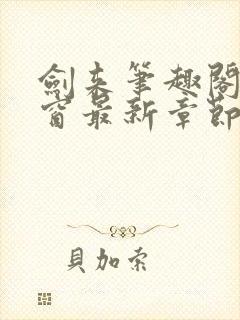 劍來筆趣閣
窗最新章節
貝加索